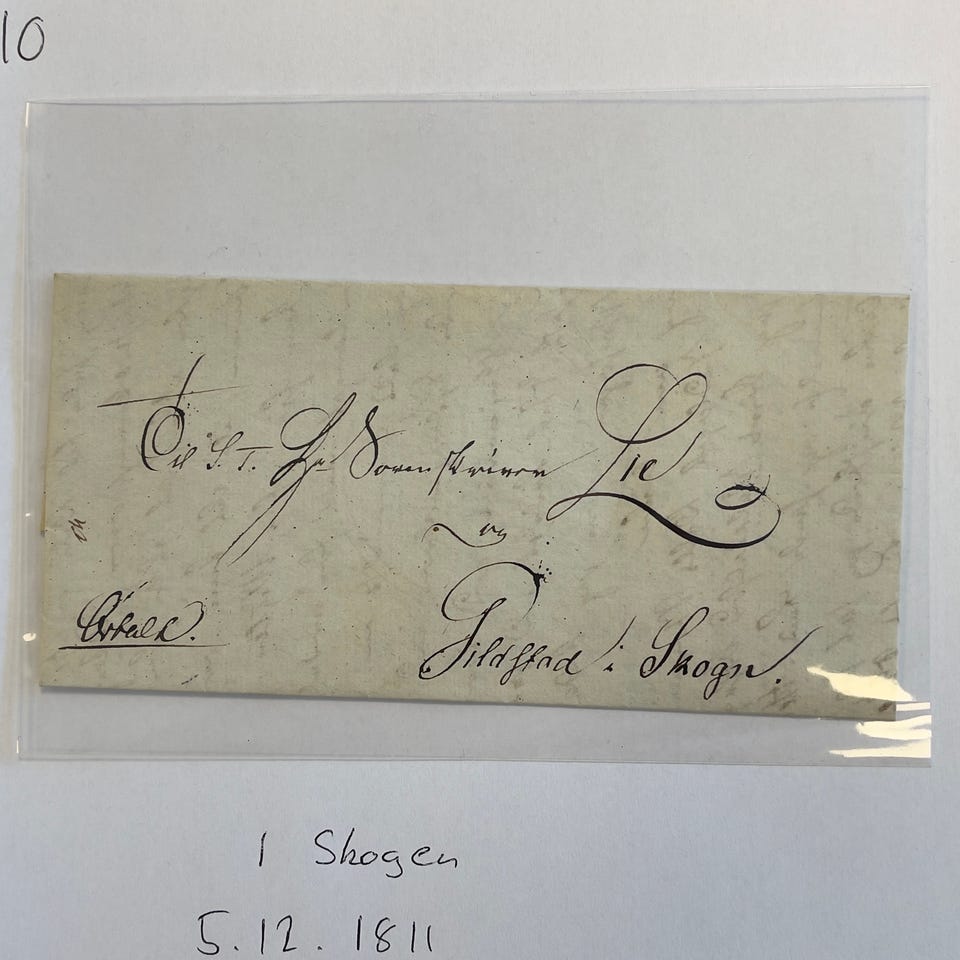 10
Til S. T. Hr Sorenskriver Lie
paa
Gildstad i Skogn.
Betalt.
1 Skogen
5.12.1811